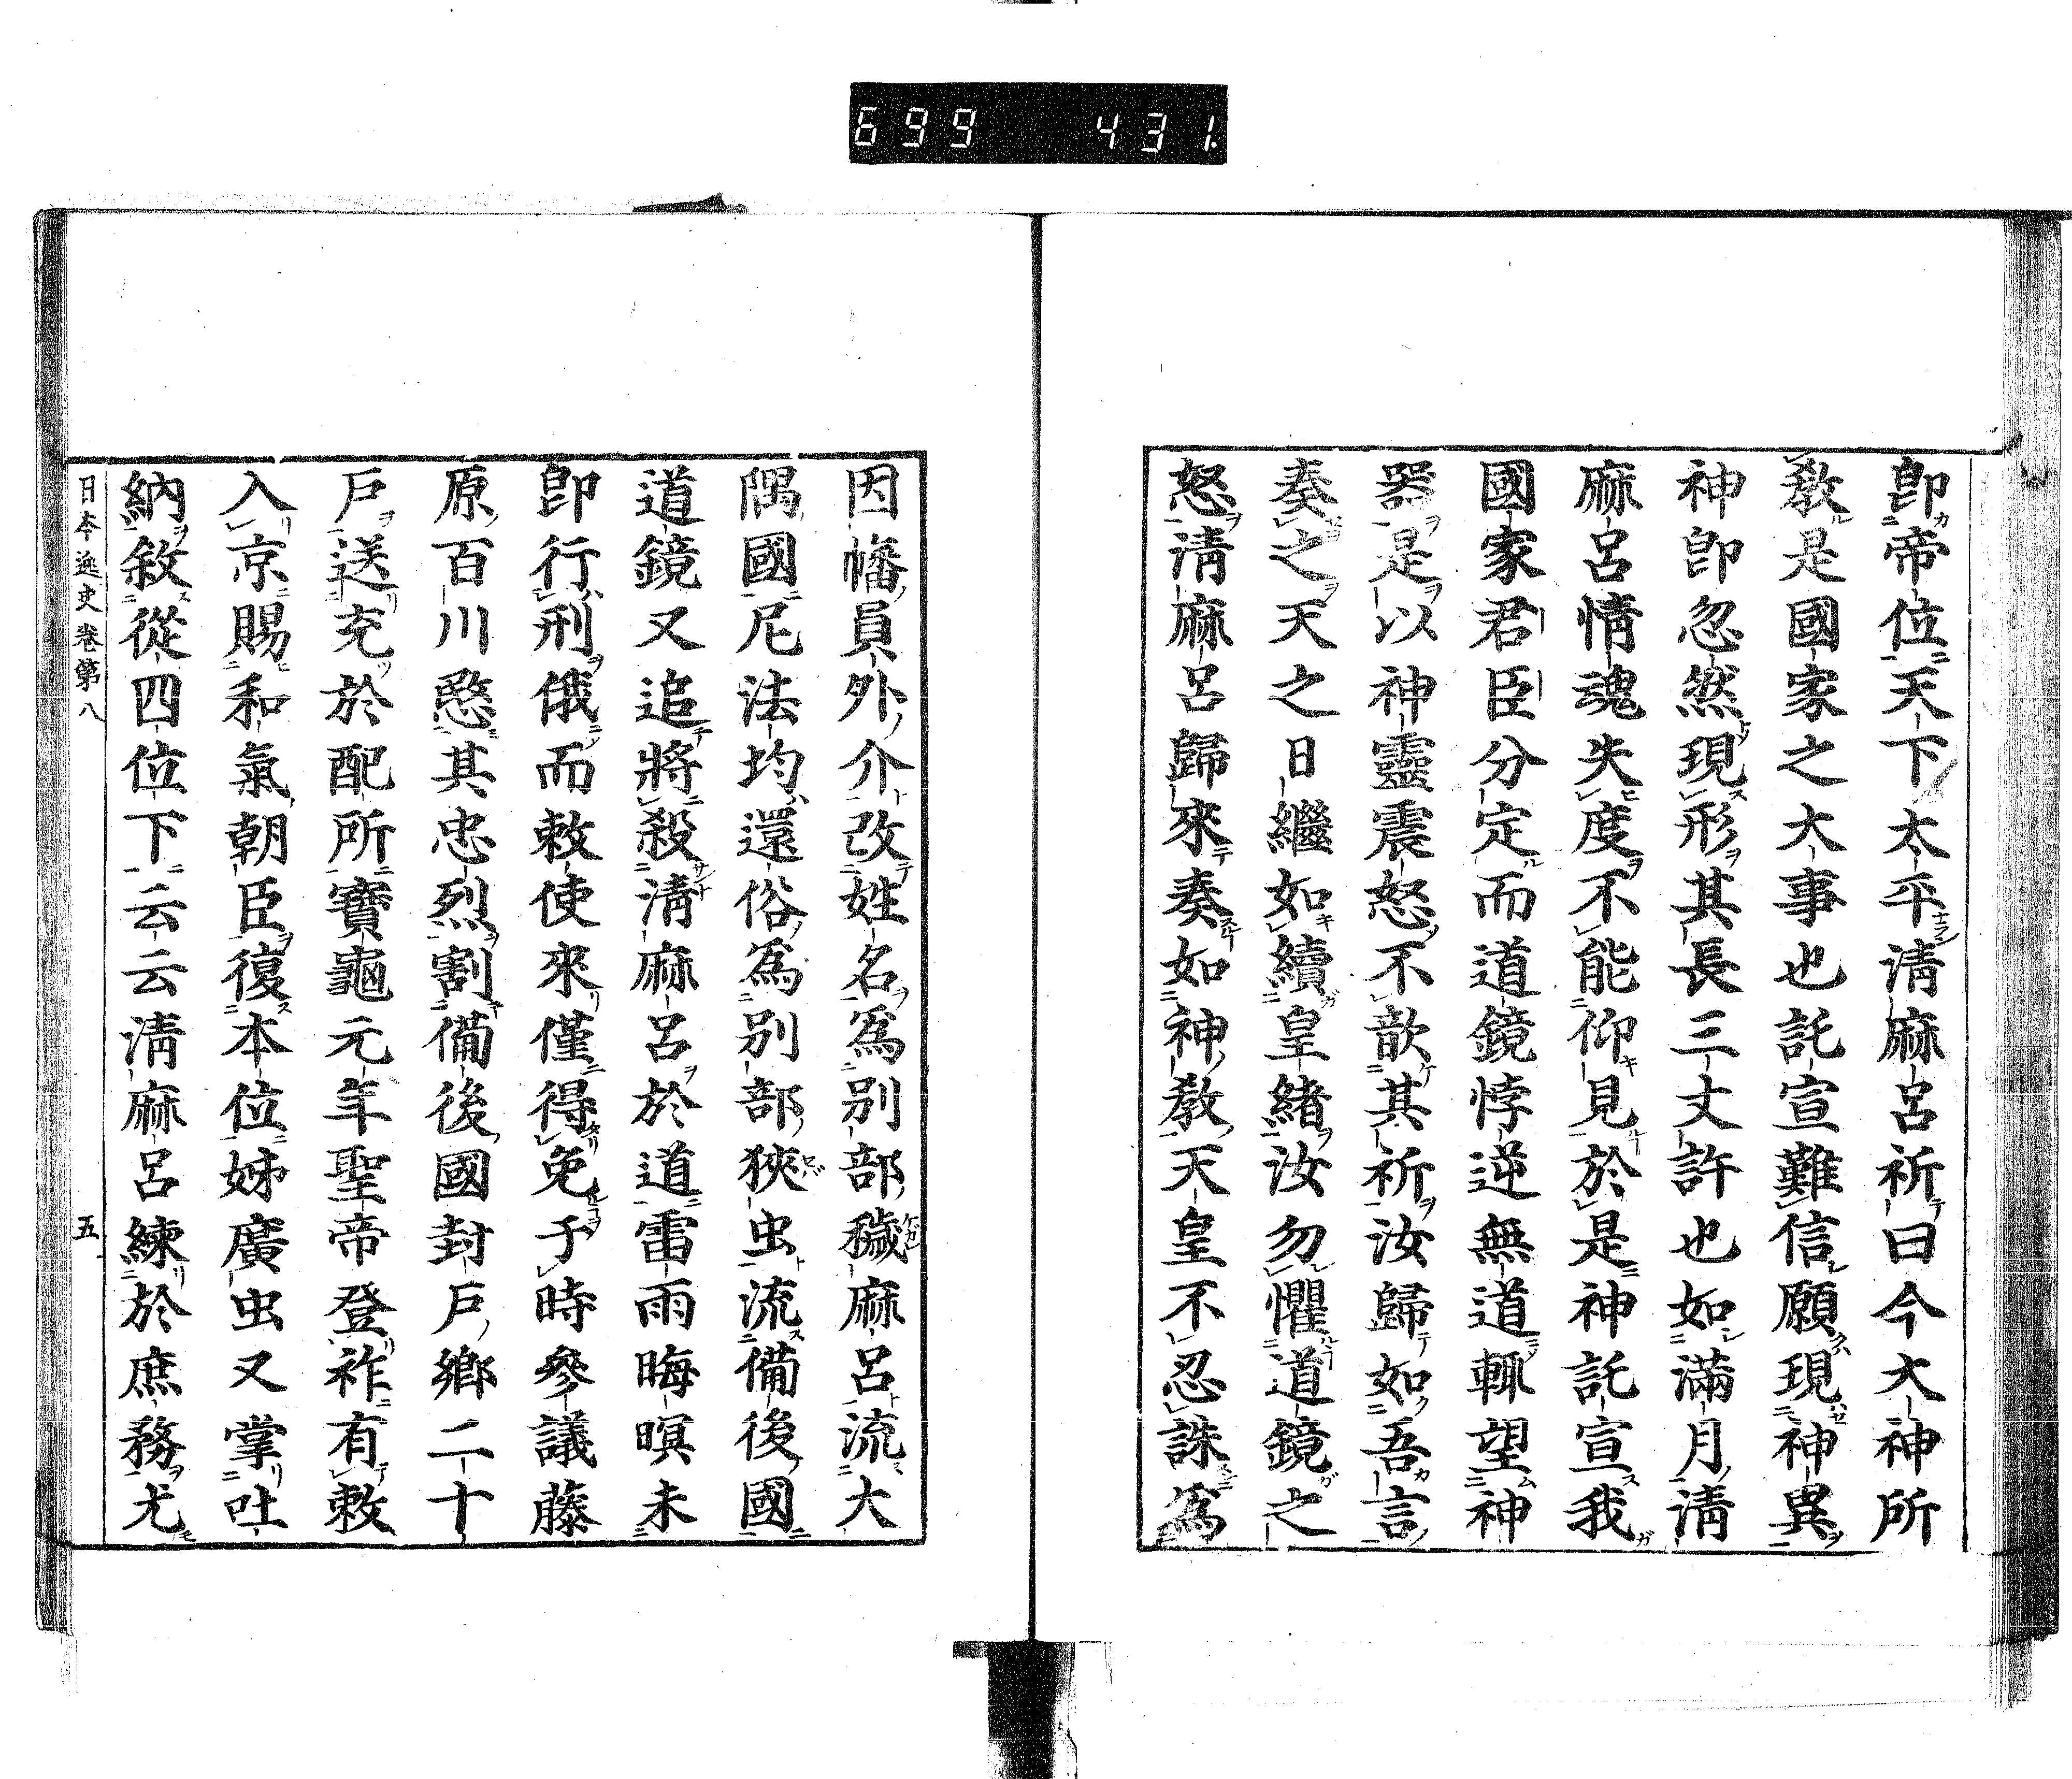 699 431.
即帝位天下太平淸麻呂祈曰今大神所
敎是國家之大事也託宣難信願現神異
神即忽然現形其長三丈許也如滿月淸
麻呂情魂失度不能仰見於是神託宣我
國家君臣分定而道鏡悖逆無道輙望神
器是以神靈震怒不歆其祈汝歸如吾言
奏之天之日繼如續皇緒汝勿懼道鏡之
怒淸麻呂歸來奏如神敎天皇不忍誅爲
因幡員外介改姓名爲別部穢麻呂流大
隅國尼法均還俗爲別部狹虫流備後國
道鏡又追將殺淸麻呂於道雷雨晦暝未
即行刑俄而敕使來僅得免于時參議藤
原百川愍其忠烈割備後國封戶鄉二十
戶送充於配所寶龜元年聖帝登祚有敕
入京賜和氣朝臣復本位姊廣虫又掌吐
納敘從四位下云云淸麻呂練於庶務尤
日本逸史卷第八 五